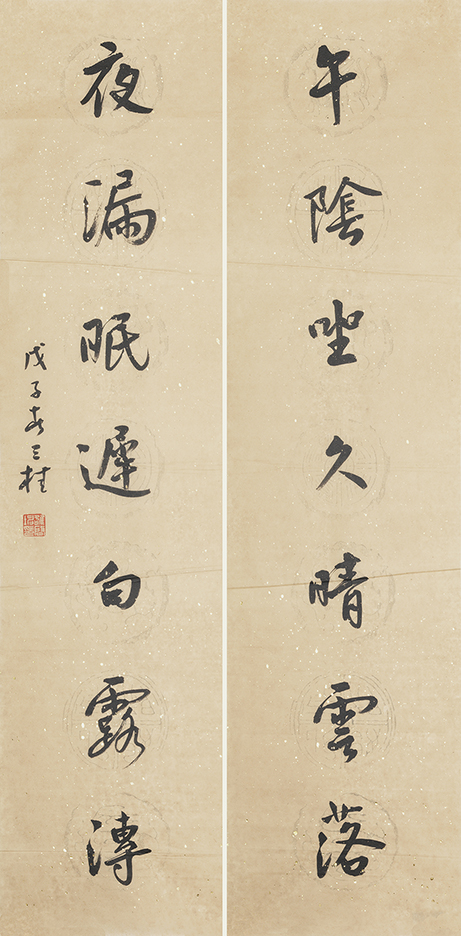 午陰坐久晴雲落
夜漏眠遲白露漙
戊子春三桂